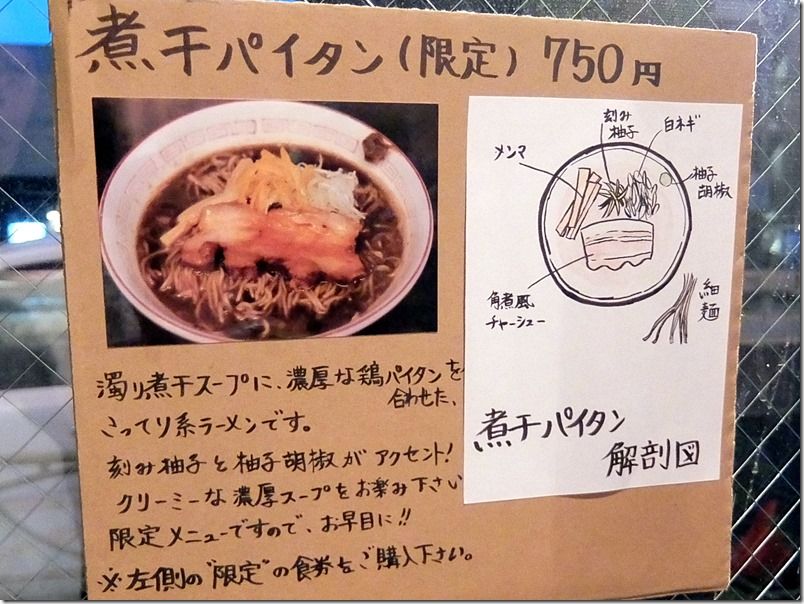 煮干パイタン(限定) 750円
刻み
柚子
白ネギ
メンマ
柚子
胡椒
角煮風
チャーシュー
細
麺
煮干パイタン
解剖図
濁り煮干スープに、濃厚な鶏パイタンを
合わせた、
こってり系ラーメンです。
刻み柚子と柚子胡椒がアクセント!
クリーミーな濃厚スープをお楽み下さい
限定メニューですので、お早目に!!
※左側の"限定"の食券をご購入下さい。